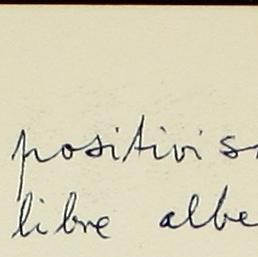 positivis
libre albe